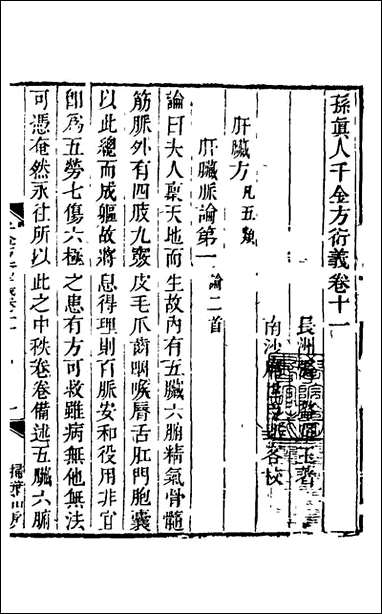 孫眞人千金方衍義卷十一
長洲 璐玉著
南沙 客校
肝臟方凡五類
肝臟脈論第一論二首
論曰夫人稟天地而生故內有五臟六腑精氣骨髓
筋脈外有四肢九竅皮毛爪齒咽喉脣舌肛門胞囊
以此總而成軀故將息得理則百脈安和役用非宜
卽爲五勞七傷六極之患有方可救雖病無他無法
可憑奄然永往所以此之中秩卷卷備述五臟六腑
掃葉山房